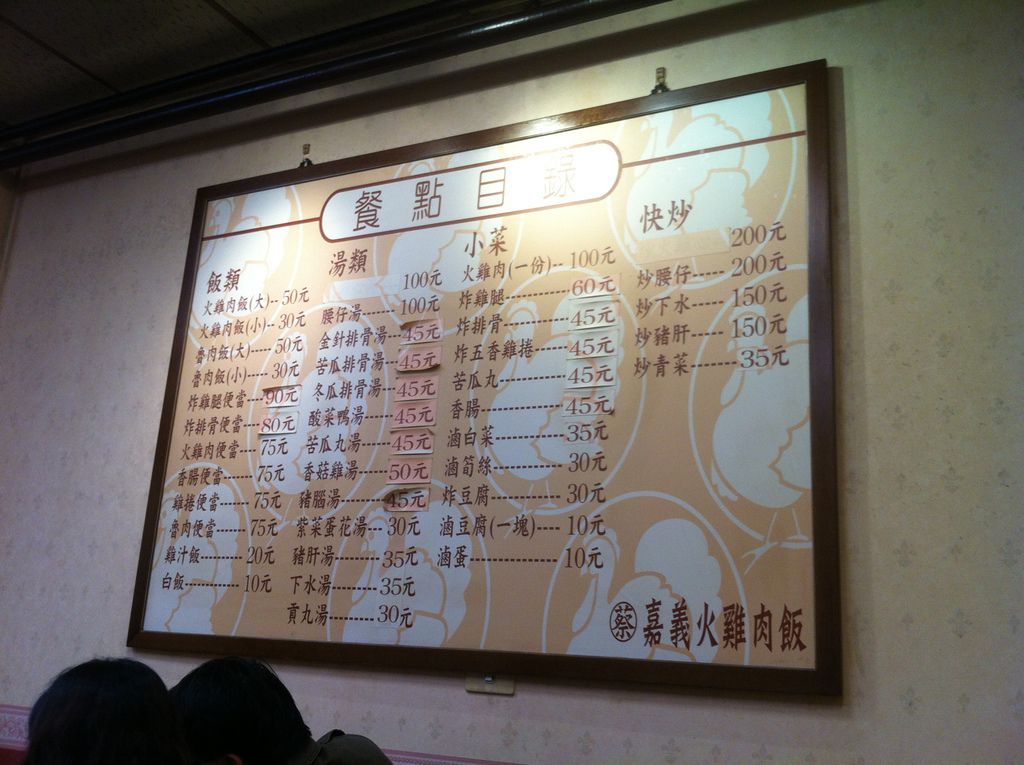 餐點目錄
飯類
火雞肉飯(大)--50元
火雞肉飯(小)--30元
魯肉飯(大)-----50元
魯肉飯(小)-----30元
炸雞腿便當---90元
炸排骨便當---80元
火雞肉便當----75元
香腸便當------75元
雞捲便當-------75元
魯肉便當-------75元
雞汁飯---------20元
白飯------------10元
湯類
100元
腰仔湯------100元
金針排骨湯--45元
苦瓜排骨湯--45元
冬瓜排骨湯--45元
酸菜鴨湯----45元
苦瓜丸湯----45元
香菇雞湯----50元
豬腦湯------45元
紫菜蛋花湯--30元
豬肝湯------35元
下水湯------35元
貢丸湯------30元
小菜
火雞肉(一份)--100元
炸雞腿---------60元
炸排骨---------45元
炸五香雞捲----45元
苦瓜丸---------45元
香腸-----------45元
滷白菜---------35元
滷筍絲---------30元
炸豆腐---------30元
滷豆腐(一塊)---10元
滷蛋-----------10元
快炒
200元
炒腰仔-----200元
炒下水-----150元
炒豬肝-----150元
炒青菜------35元
蔡 嘉義火雞肉飯